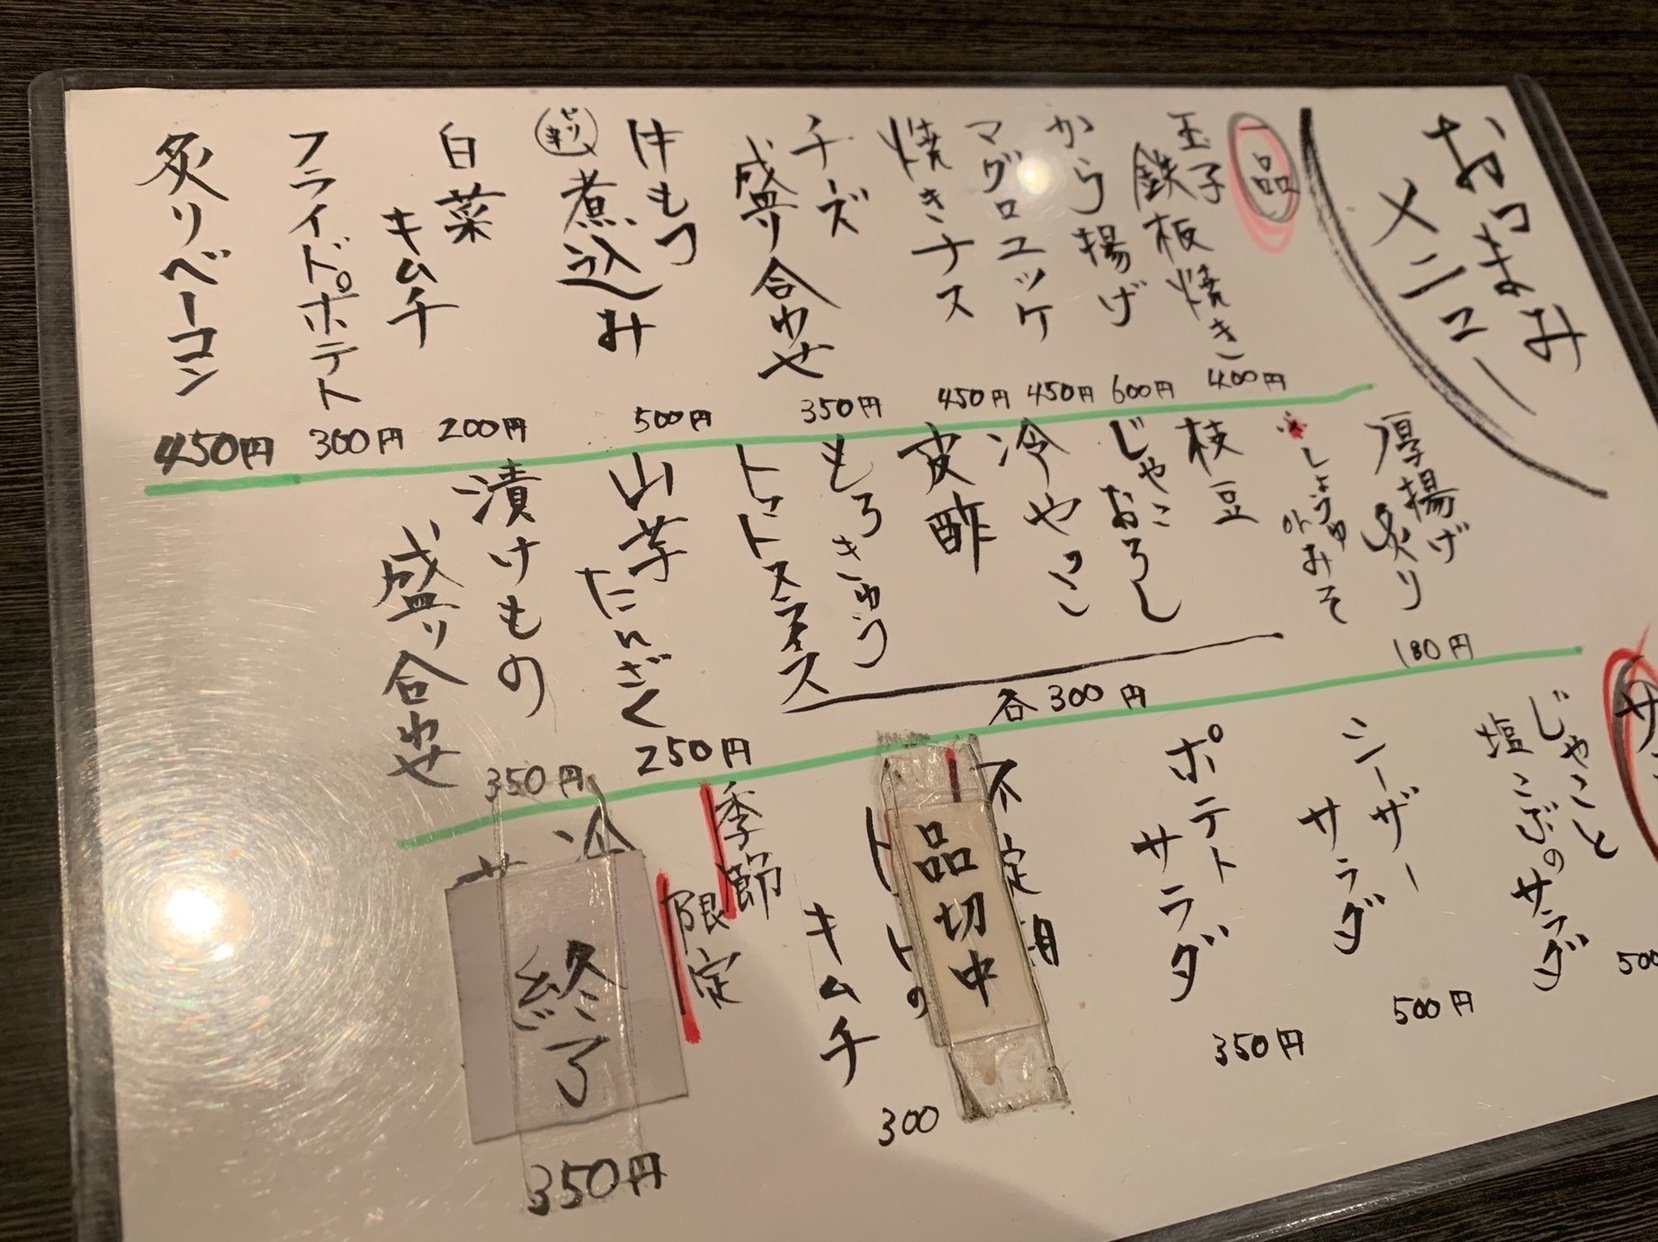 おつまみ
メニュー
一品
玉子
鉄板焼き
400円
から揚げ
600円
マグロユッケ
450円
焼きナス
450円
チーズ
盛り合わせ
350円
牛もつ
ピリ辛
煮込み
500円
白菜
キムチ
200円
フライドポテト
300円
炙りベーコン
450円
厚揚げ
炙り
※しょうゆ
orみそ
180円
枝豆
じゃこおろし
冷やっこ
皮酢
もろきゅう
トマトスライス
各300円
山芋
たんざく
250円
漬けもの
盛り合わせ
350円
サ
じゃこと
塩こぶのサラダ
500
シーザー
サラダ
500円
ポテト
サラダ
350円
不定期
品切中
トマトの
キムチ
300
季節
限定
冷
終了
350円